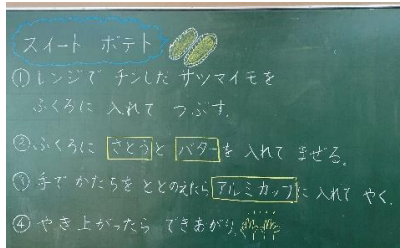 スイート ポテト
① レンジで チンした サツマイモを
ふくろに 入れて つぶす.
② ふくろに さとう と バター を 入れて まぜる.
③ 手で かたちを ととのえたら アルミカップ に 入れて やく.
④ やき上がったら できあがり.